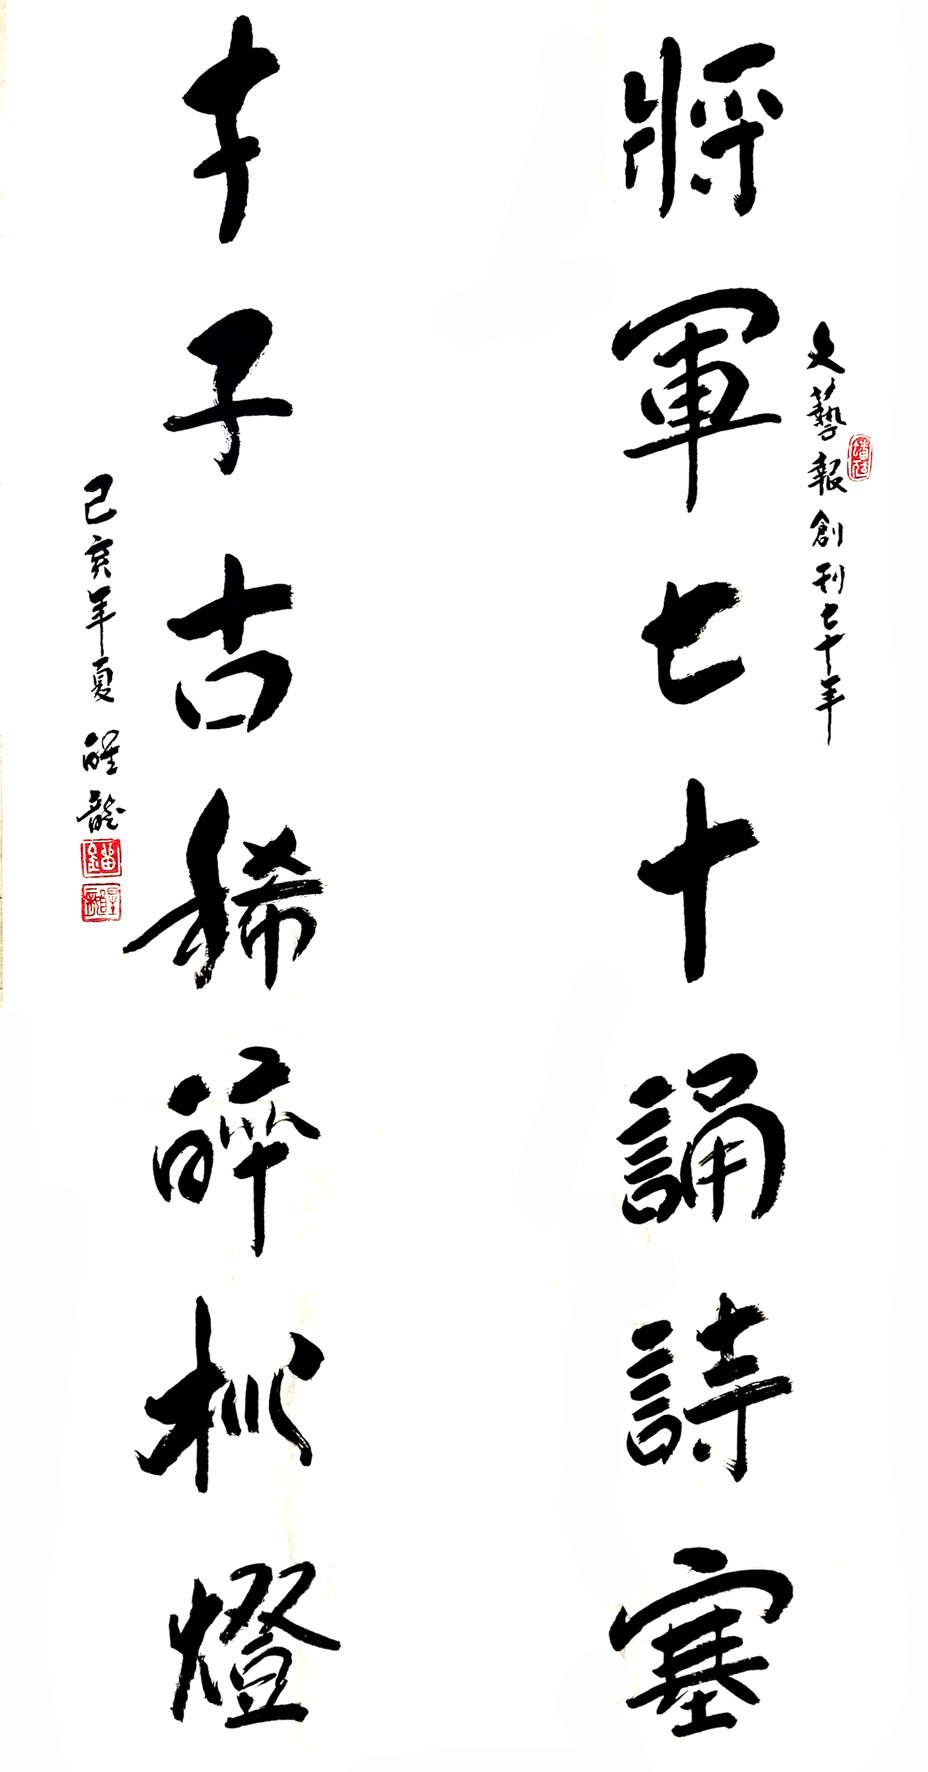 文藝報創刊七十年
將軍七十誦詩塞
才子古稀醉燈
己亥年夏 醒龍